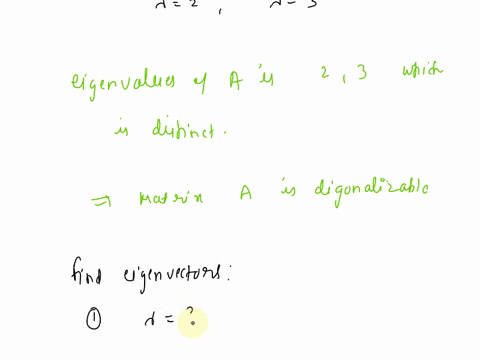 λ = 2 , λ = 3
eigenvalues of A is 2 , 3 which
is distinct.
⇒ Matrix A is digonalizable
find eigenvectors:
① λ =